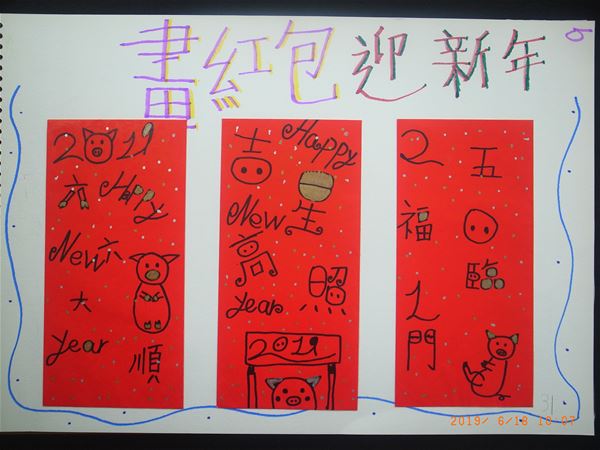 畫紅包迎新年
2019
六 Happy
New 六
大
year
順
吉 Happy
New 生
高
照
year
2019
2 五
福
臨
1 門
31
2019/ 6/18 10:07